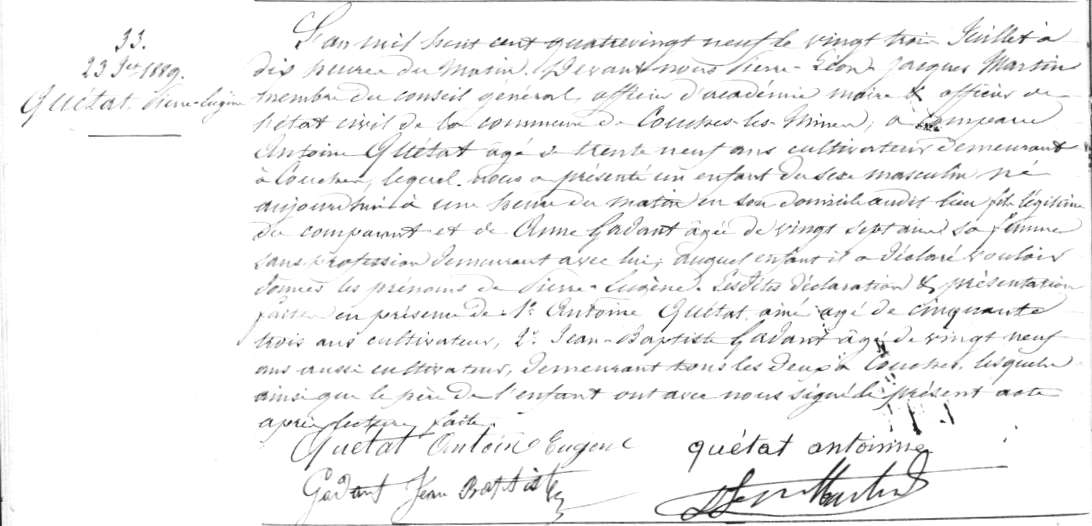 33.
23 Jet 1889.
Quétat Pierre-Eugène
L'an mil huit cent quatrevingt neuf le vingt trois Juillet à
dix heures du Matin. Devant nous Pierre-Léon-Jacques Martin
membre du conseil général, officier d'académie maire & officier de
l'état civil de la commune de Couches-les-Mines, a comparu
Antoine Quétat âgé de trente neuf ans cultivateur demeurant
à Couches, lequel nous a présenté un enfant du sexe masculin né
aujourd'hui à une heure du matin en son domicile audit lieu fils légitime
du comparant et de Anne Gadant âgée de vingt sept ans sa femme
sans profession demeurant avec lui, auquel enfant il a déclaré vouloir
donner les prénoms de Pierre-Eugène. Lesdites déclaration & présentation
faites en présence de 1° Antoine Quétat ainé agé de cinquante
trois ans cultivateur, 2° Jean-Baptiste Gadant âgé de vingt neuf
ans aussi cultivateur, demeurant tous les deux à Couches, lesquels
ainsi que le père de l'enfant ont avec nous signé le présent acte
après lecture faite.
Quétat Antoine Eugene quétat antoinne
Gadant Jean Baptiste Martin